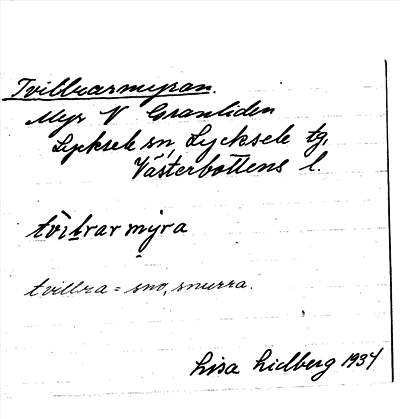 Tvillrarmyran.
Myr N Granliden
Lycksele sn, Lycksele tg,
Västerbottens l.
tvìlrar mỳra
tvillra = sno, snurra.
Lisa Lidberg 1934